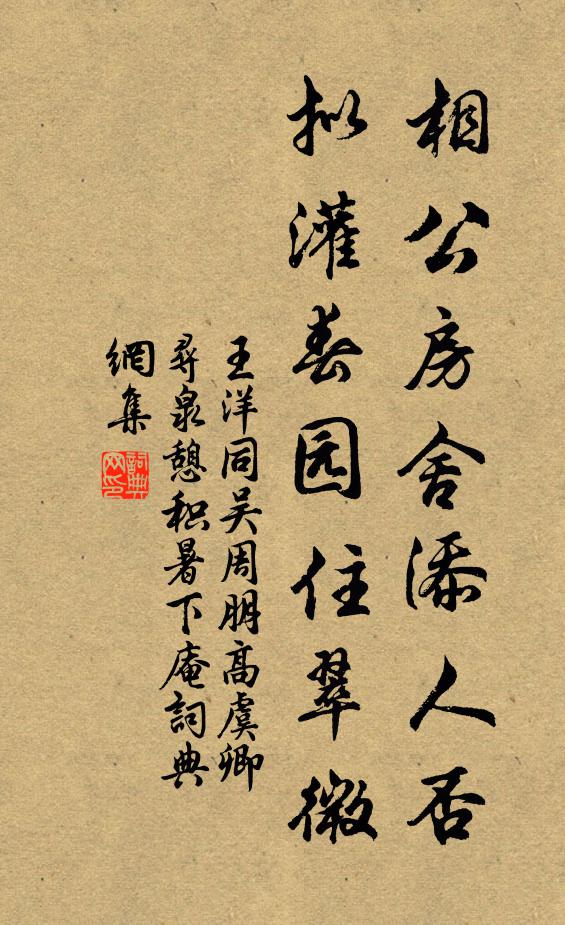 相公房舍添人否
拟灌春园住翠微
王洋同吴周朋高虞卿
尋泉憩积暑下庵詞典
網集
詞典
网印